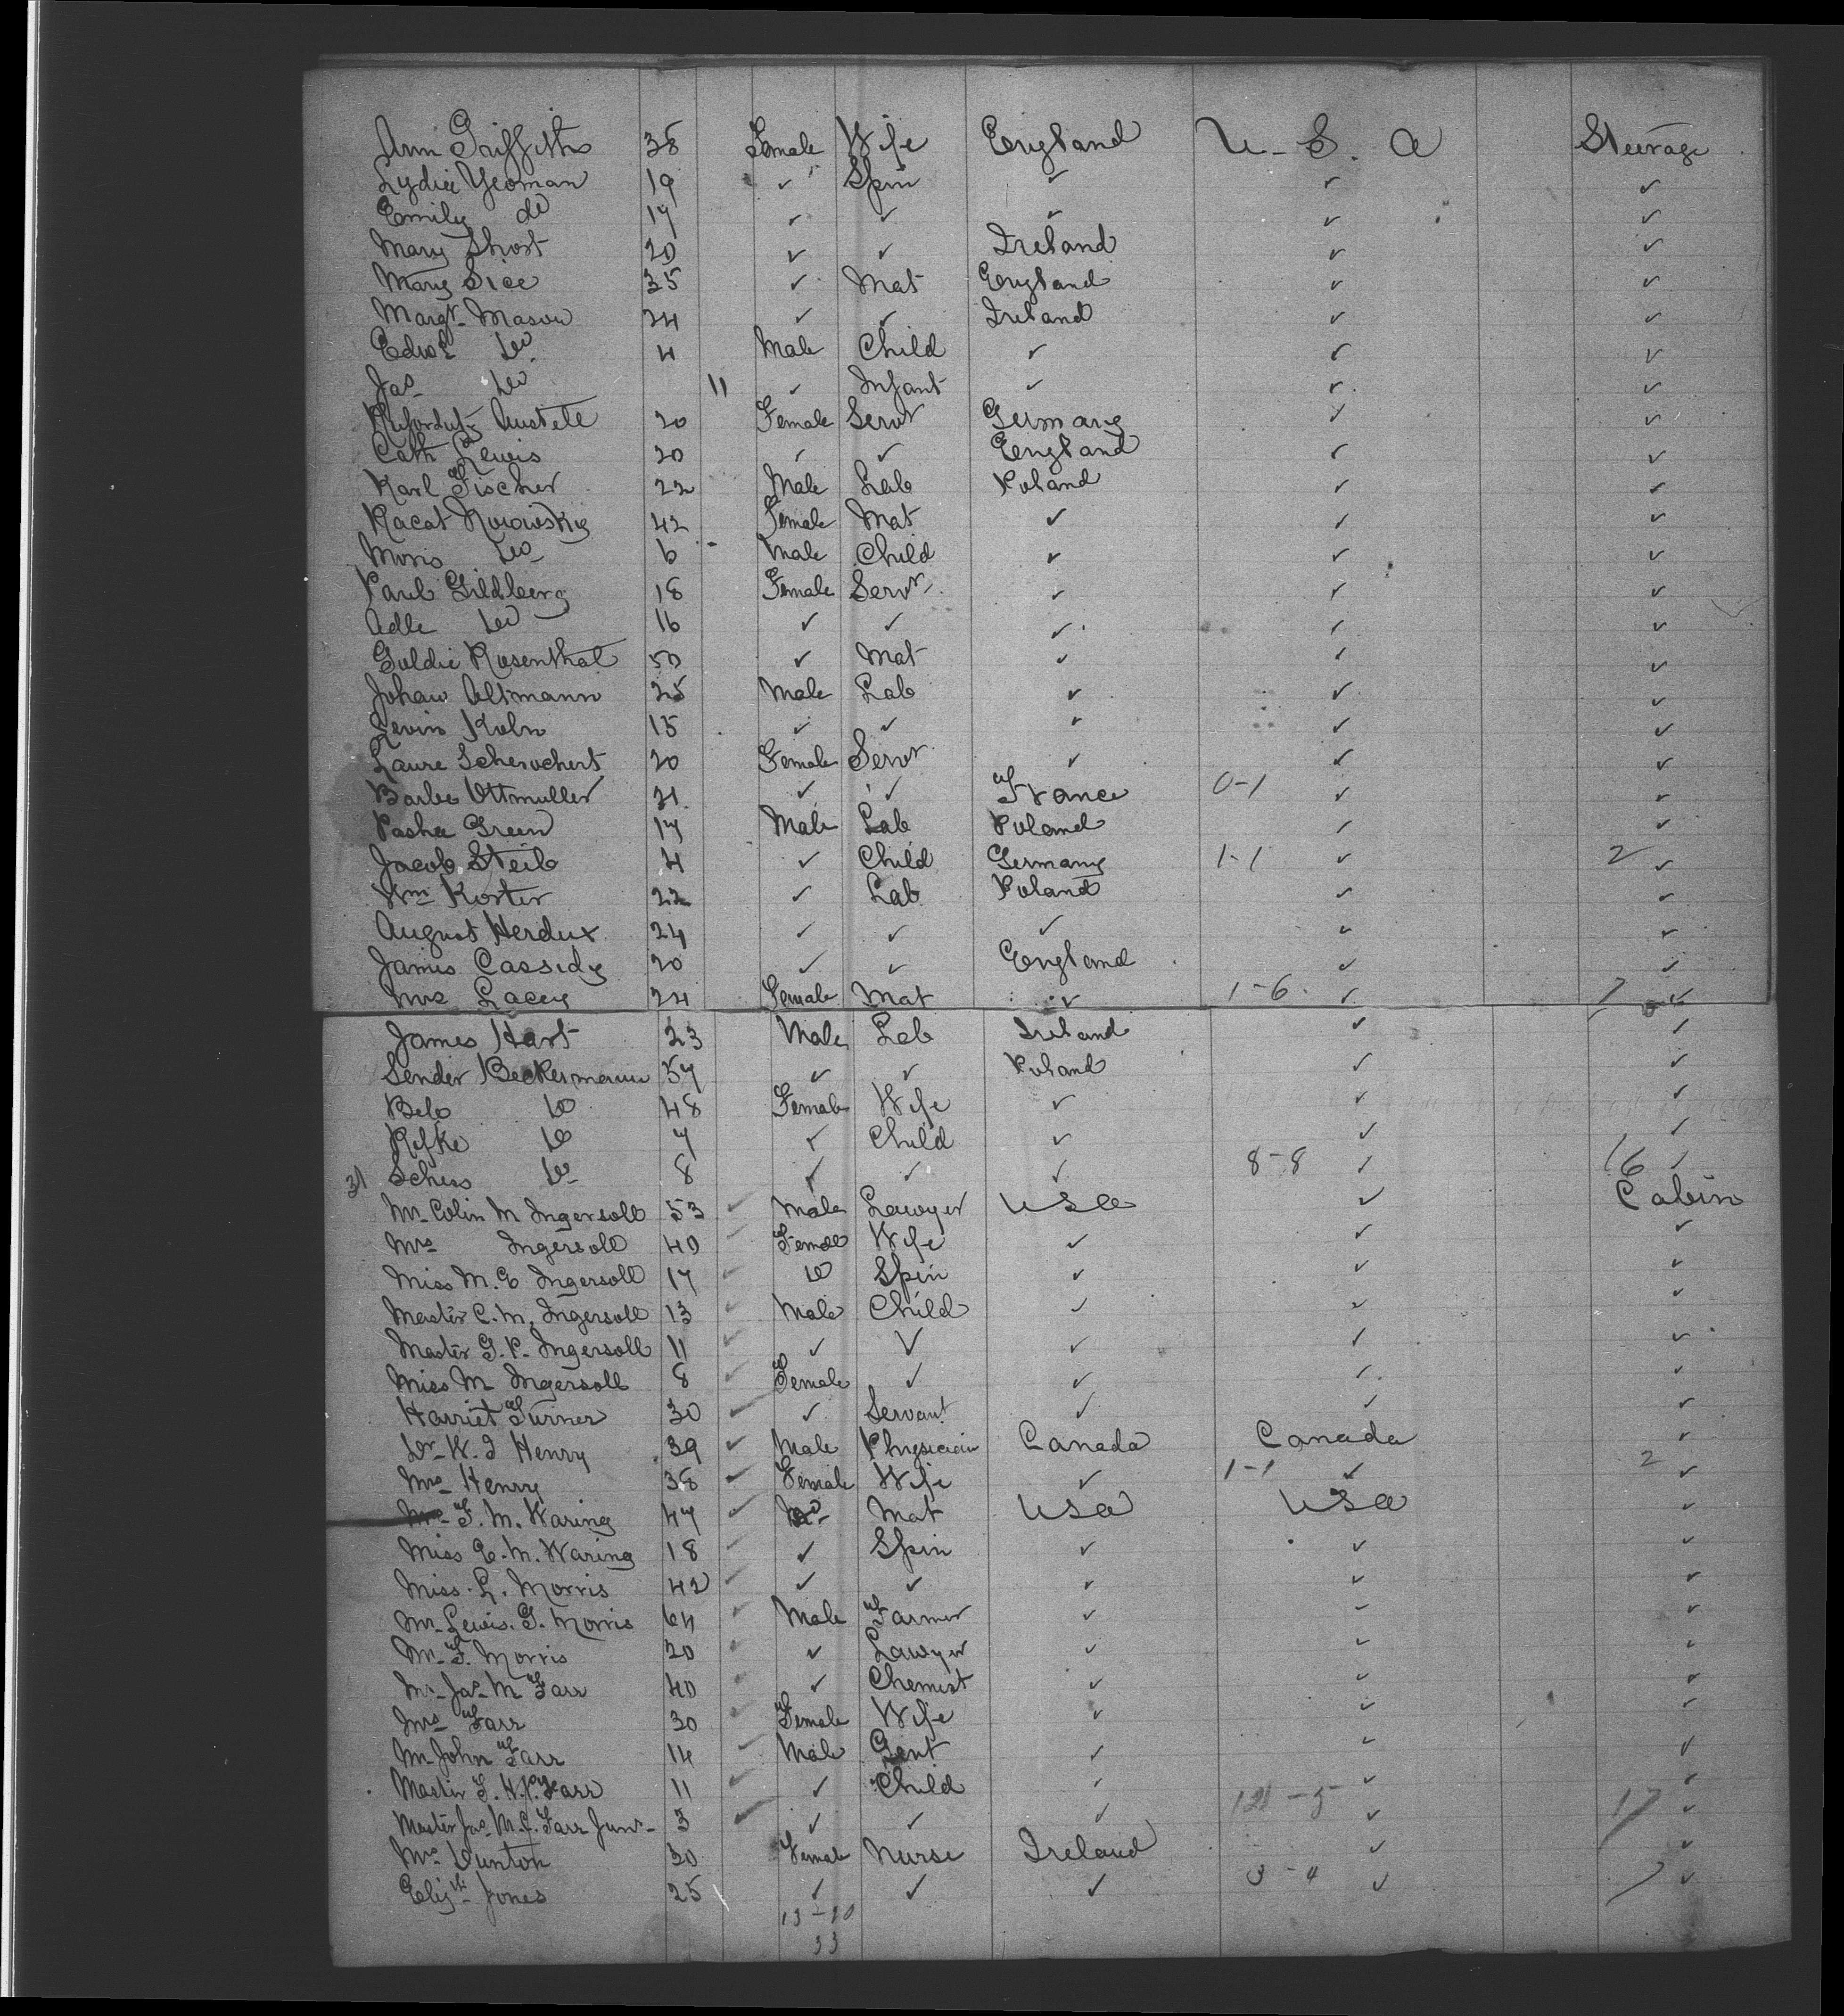 Ann Griffiths 38 Female Wife England U. S. A Steerage
Lydia Yeoman 19 ✓ Spin ✓ ✓ ✓
Emily do 17 ✓ ✓ ✓ ✓ ✓
Mary Short 20 ✓ ✓ Ireland ✓ ✓
Mary Sice 35 ✓ Mat England ✓ ✓
Margt Mason 24 ✓ ✓ Ireland ✓ ✓
Edwd Do 4 Male Child ✓ ✓ ✓
Jas Do 11 ✓ Infant ✓ ✓ ✓
20 Female Servt Germany ✓ ✓
Cath Lewis 20 ✓ ✓ England ✓ ✓
Karl Fischer 22 Male Lab Poland ✓ ✓
Racat Nurowsky 42 Female Mat ✓ ✓ ✓
Morris Do 6 Male Child ✓ ✓ ✓
Paul Gildberg 18 Female Servt ✓ ✓ ✓
Adle Do 16 ✓ ✓ ✓ ✓ ✓
Goldie Rosenthal 50 ✓ Mat ✓ ✓ ✓
Johan Altmann 25 Male Lab ✓ ✓ ✓
Levin Kohn 15 ✓ ✓ ✓ ✓ ✓
Laure Scherochert 20 Female Servt ✓ ✓ ✓
Barbe Ottmuller 21 ✓ ✓ France 0-1 ✓ ✓
Pasha Green 17 Male Lab Poland ✓ ✓
Jacob Steib 4 ✓ Child Germany 1-1 ✓ 2 ✓
Wm Korter 22 ✓ Lab Poland ✓ ✓
August Herdux 24 ✓ ✓ ✓ ✓ ✓
James Cassidy 20 ✓ ✓ England ✓ ✓
Mrs Lacey 24 Female Mat ✓ 1-6 ✓ 7 ✓
James Hart 23 Male Lab Ireland ✓ ✓
Sender Beckermann 57 ✓ ✓ Poland ✓ ✓
Bele Do 48 Female Wife ✓ ✓ ✓
Rifke Do 7 ✓ Child ✓ ✓ ✓
31 Schess Do 8 ✓ ✓ ✓ 8-8 ✓ 16 ✓
Mr Colin M Ingersoll 53 ✓ Male Lawyer USA ✓ Cabin
Mrs Ingersoll 40 ✓ Female Wife ✓ ✓ ✓
Miss M. E Ingersoll 17 ✓ Do Spin ✓ ✓ ✓
Master C. M. Ingersoll 13 ✓ Male Child ✓ ✓ ✓
Master G. P. Ingersoll 11 ✓ ✓ ✓ ✓ ✓ ✓
Miss M Ingersoll 8 ✓ Female ✓ ✓ ✓ ✓
Harriet Turner 30 ✓ ✓ Servant ✓ ✓ ✓
Dr W. J Henry 39 ✓ Male Physician Canada Canada ✓
Mrs Henry 38 ✓ Female Wife ✓ 1-1 ✓ 2 ✓
Mrs F. M. Waring 47 ✓ Do Mat USA USA ✓
Miss E. M. Waring 18 ✓ ✓ Spin ✓ ✓ ✓
Miss L. Morris 42 ✓ ✓ ✓ ✓ ✓ ✓
Mr Lewis. G. Morris 64 ✓ Male Farmer ✓ ✓ ✓
Mr F. Morris 30 ✓ ✓ Lawyer ✓ ✓ ✓
Mr Jas M Farr 40 ✓ ✓ Chemist ✓ ✓ ✓
Mrs Farr 30 ✓ Female Wife ✓ ✓ ✓
Mr John Farr 14 ✓ Male Gent ✓ ✓ ✓
Master T. H. P. Farr 11 ✓ ✓ Child ✓ ✓ ✓
Master Jas. M. C. Farr Junr 3 ✓ ✓ ✓ ✓ 12-5 ✓ 17 ✓
Mrs Dunton 30 Female Nurse Ireland ✓ ✓
Elizth Jones 25 ✓ ✓ ✓ 3-4 ✓ 7 ✓
13-20
33